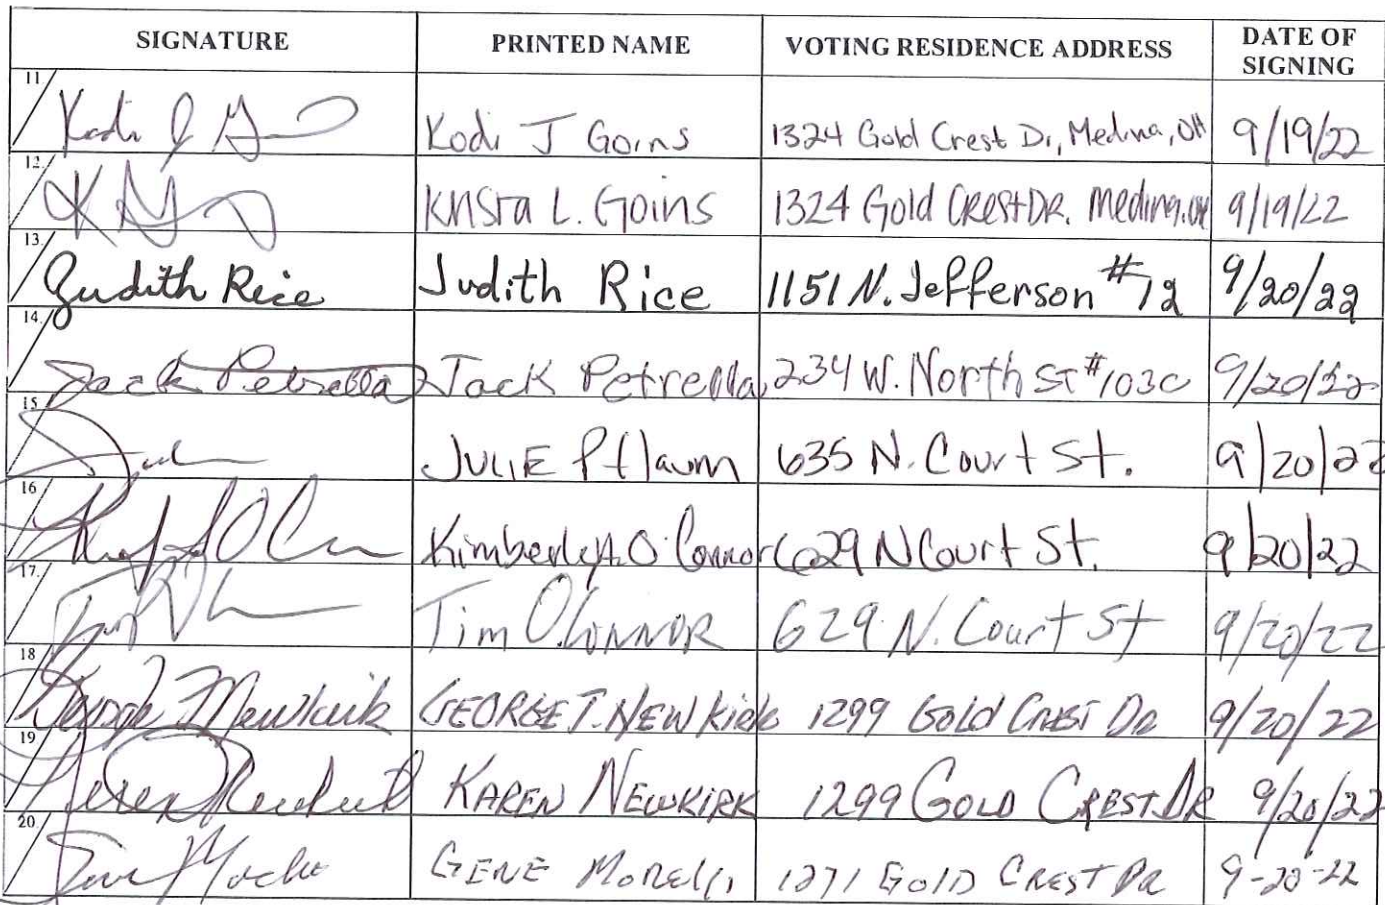 SIGNATURE PRINTED NAME VOTING RESIDENCE ADDRESS DATE OF SIGNING
11 Kodi J G Kodi J Goins 1324 Gold Crest Dr, Medina, OH 9/19/22
12. K Krista L. Goins 1324 Gold CREST DR. Medina, OH 9/19/22
13. Judith Rice Judith Rice 1151 N. Jefferson #72 9/20/22
14. Jack Petrella Jack Petrella 234 W. North ST #103C 9/20/22
15 JULIE Pflaum 635 N. Court St. 9/20/22
16 Kimberly A. O'Connor 629 N Court St. 9/20/22
17. Tim O'CONNOR 629 N. Court St 9/20/22
18 George Newkirk GEORGE T. NEWKirk 1299 Gold CREST DR 9/20/22
19 Karen Newkirk KAREN NEWKIRK 1299 GOLD CREST DR 9/20/22
20 GENE MORELLI 1271 GOLD CREST DR 9-20-22